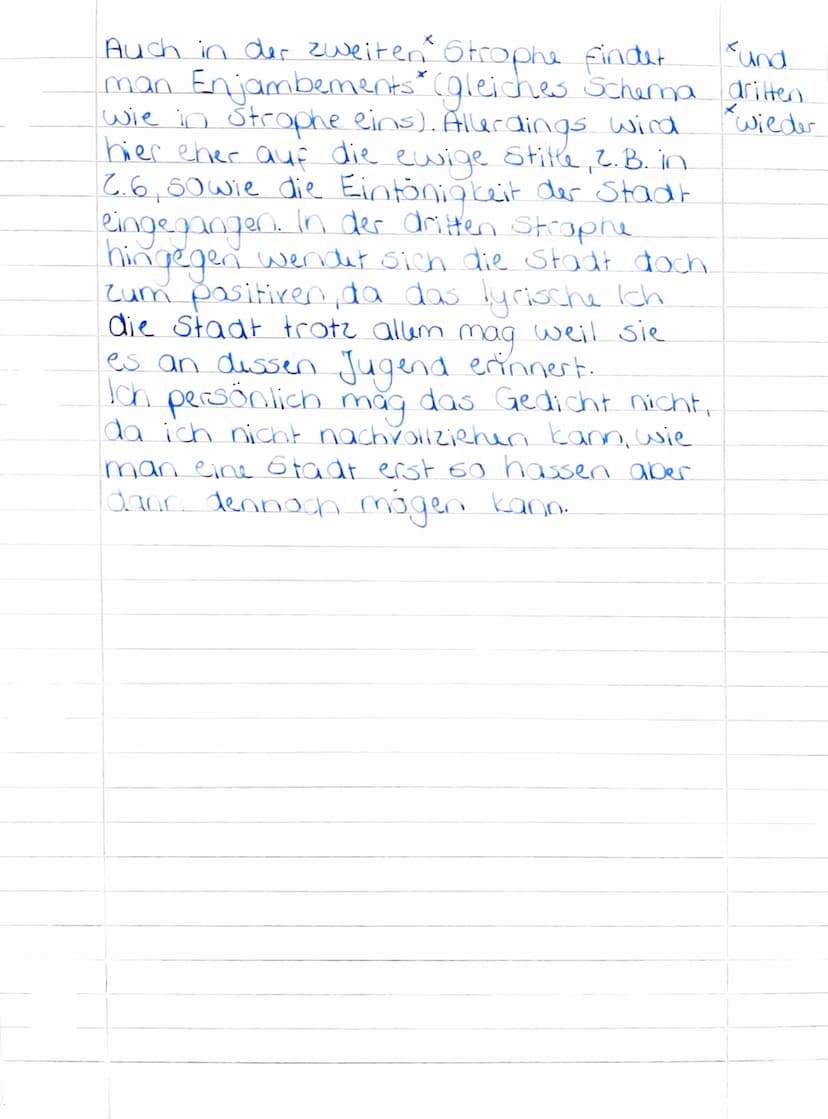 Auch in der zweiten* Strophe findet
man Enjambements* (gleiches Schema
wie in Strophe eins). Allerdings wird
hier eher auf die ewige Stille, z.B. in
Z.6, sowie die Eintönigkeit der Stadt
eingegangen. In der dritten Strophe
hingegen wendet sich die Stadt doch
zum positiven, da das lyrische Ich
die Stadt trotz allem mag weil sie
es an dessen Jugend erinnert.
Ich persönlich mag das Gedicht nicht,
da ich nicht nachvollziehen kann, wie
man eine Stadt erst so hassen aber
dann dennoch mögen kann.
*und
dritten
*wieder